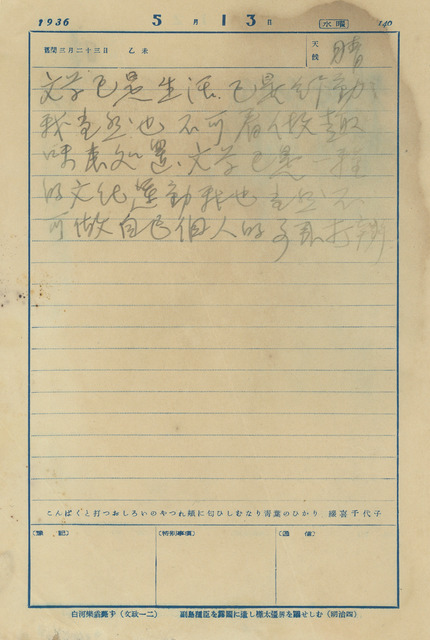 1936
5月13日
水曜
140
舊閏三月二十三日 乙未
天候 晴
文学已是生活、已是行動、
我當然也不可看做趣
味來処置、文学已是一種
的文化運動我也當然不
可做自己個人的
こんぱくと打つおしろいのやつれ頬に匂ひしむなり青葉のひかり 綠喜千代子
(豫記)
(特別事項)
(通信)
白河樂翁歿す(文政一二) 副島種臣を露國に遣し樺太疆界を議せしむ(明治四)